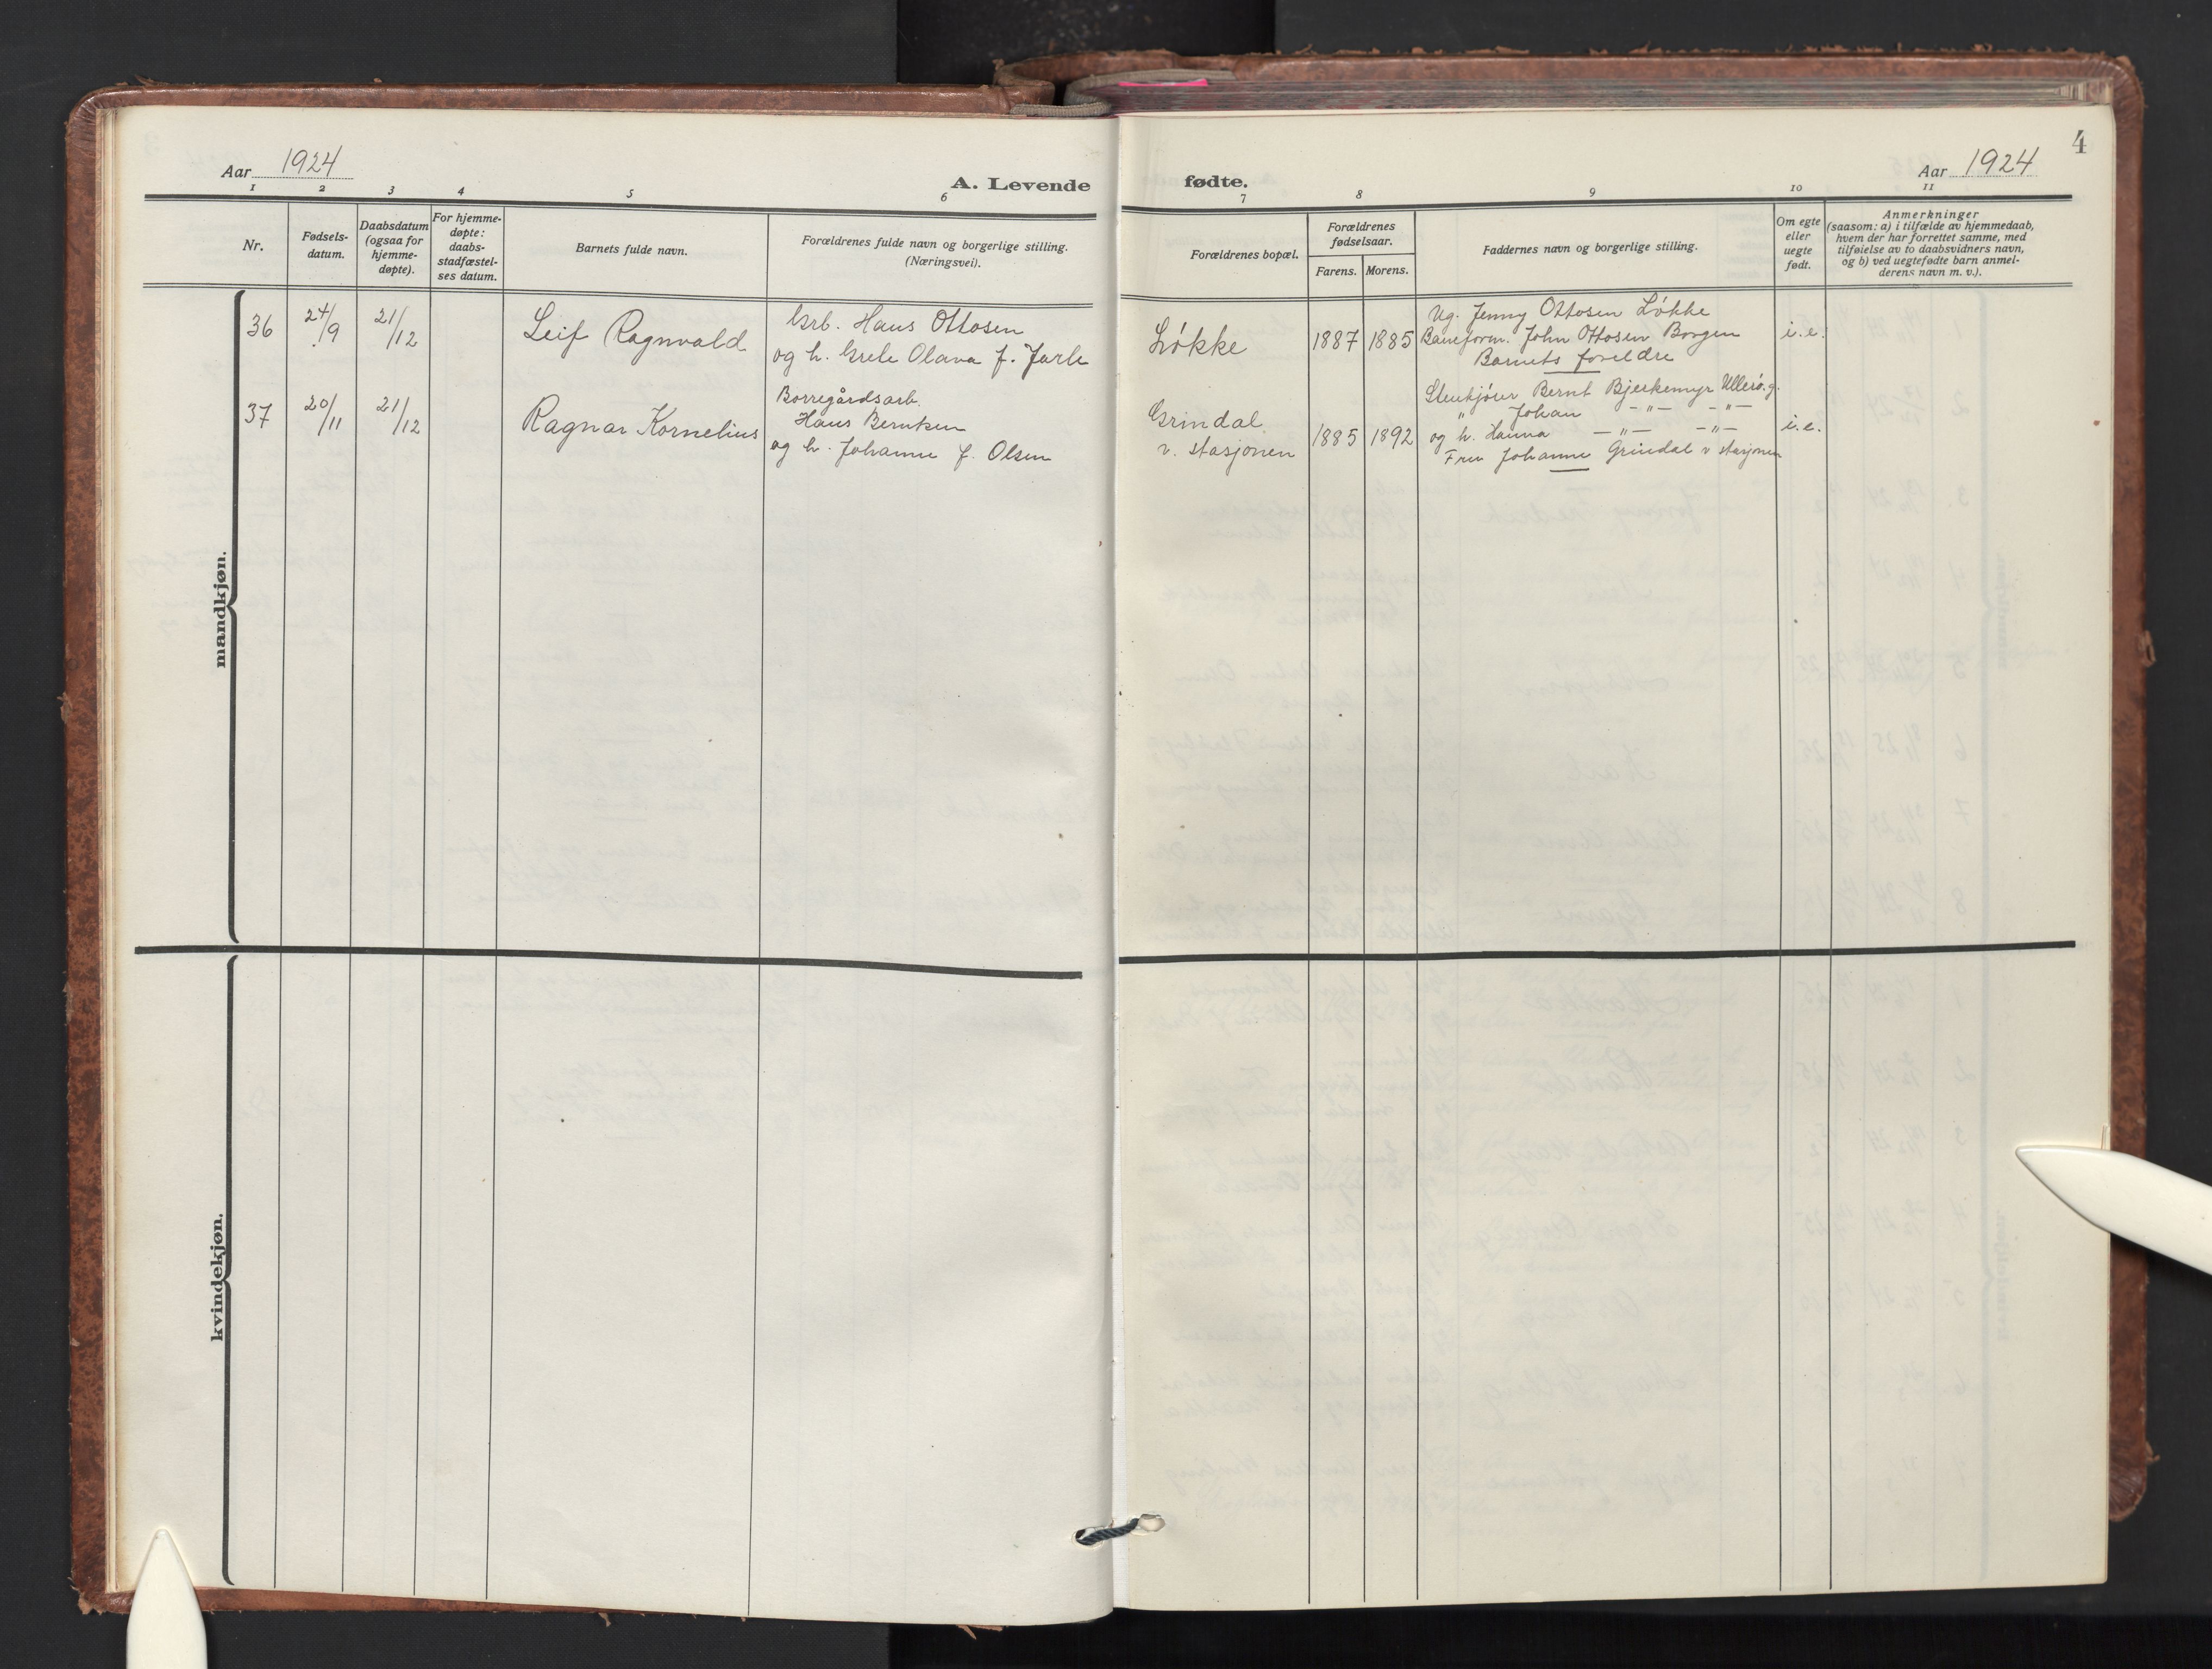 Aar 1924
A. Levende
1 2 3 4 5 6
Nr.
Fødsels-
datum.
Daabsdatum
(ogsaa for
hjemme-
døpte).
For hjemme-
døpte:
daabs-
stadfæstel-
ses datum.
Barnets fulde navn.
Forældrenes fulde navn og borgerlige stilling.
(Næringsvei).
mandkjøn.
36 24/9 21/12 Leif Ragnvald
Grb. Hans Ottosen
og h. Grete Olava f. Jarle
37 20/11 21/12 Ragnar Kornelius
Borregårdsarb.
Hans Berntsen
og h. Johanne f. Olsen
kvindekjøn.
4
fødte.
Aar 1924
7 8 9 10 11
Forældrenes bopæl.
Forældrenes
fødselsaar.
Farens. Morens.
Faddernes navn og borgerlige stilling.
Om egte
eller
uegte
født.
Anmerkninger
(saasom: a) i tilfælde av hjemmedaab,
hvem der har forrettet samme, med
tilføielse av to daabsvidners navn,
og b) ved uegtefødte barn anmel-
derens navn m. v.).
Løkke 1887 1885
Ug. Jenny Ottosen Løkke
Baneform. John Ottosen Borgen
Barnets foreldre
i.e.
Grindal
v. stasjonen
1885 1892
Stenkjører Bernt Bjerkemyr Ullerø.g.
" Johan —"— —"—
og h. Hanna —"— —"—
Fru Johanne Grindal v stasjonen
i.e.